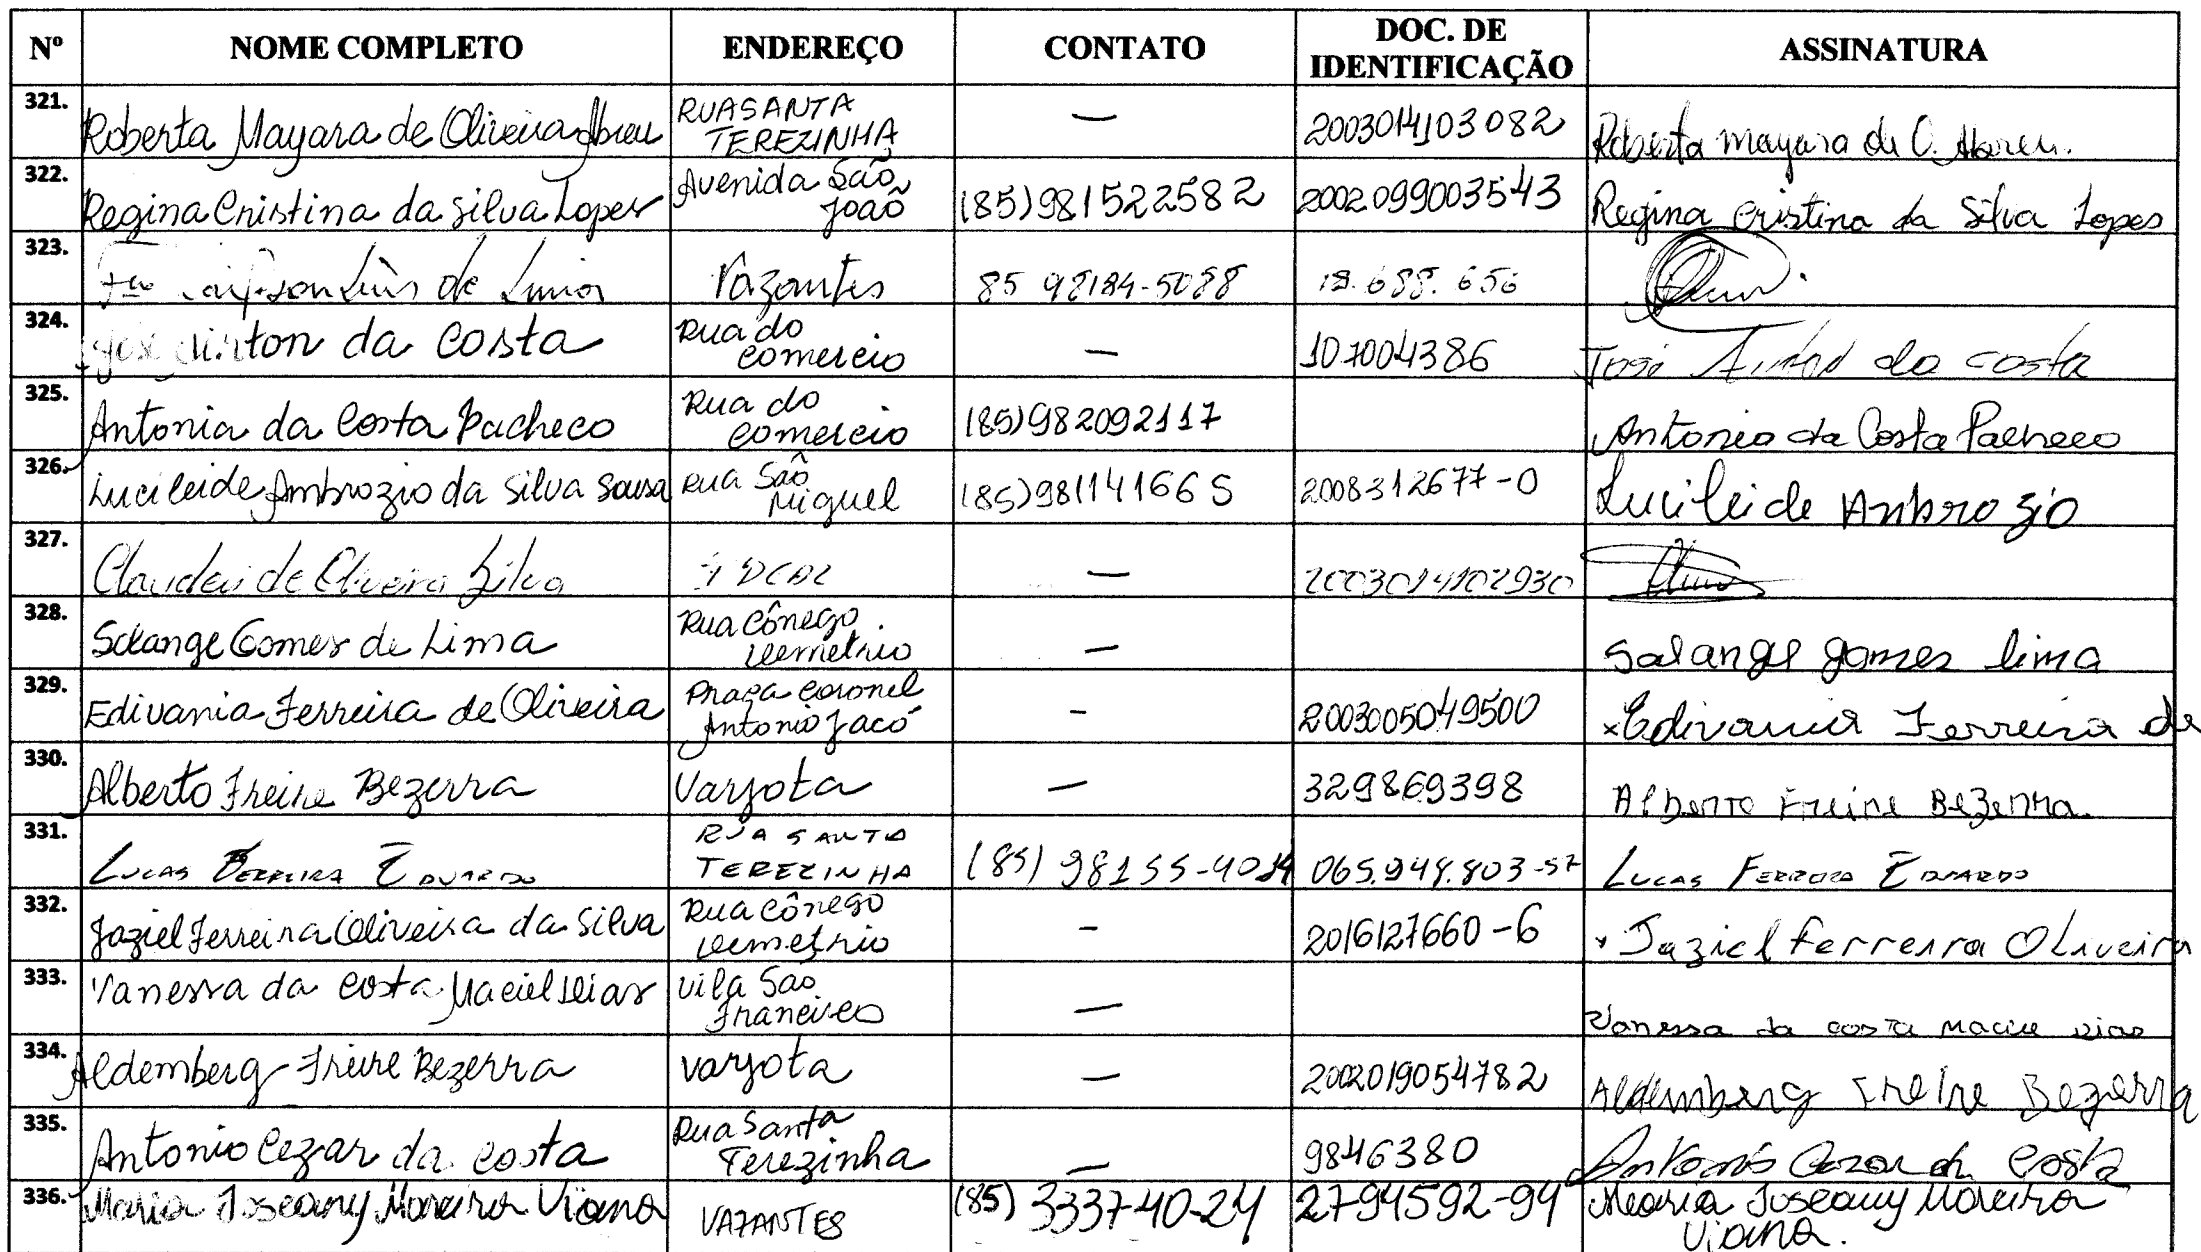 Nº NOME COMPLETO ENDEREÇO CONTATO DOC. DE IDENTIFICAÇÃO ASSINATURA
321. Roberta Mayara de Oliveira Abreu RUA SANTA TEREZINHA — 2003014103082 Roberta mayara de O. Abreu.
322. Regina Cristina da Silva Lopes Avenida São João (85)981522582 2002099003543 Regina Cristina da Silva Lopes
323. Luis de Lima Vazantes 85 98184-5088 18.688.656
324. José Airton da Costa Rua do Comercio — 107004386 José Airton da Costa
325. Antonia da Costa Pacheco Rua do Comercio (85)982092117 Antonia da Costa Pacheco
326. Lucileide Ambrozio da Silva Sousa Rua São Miguel (85)981141665 2008312677-0 Lucileide Ambrozio
327. de Oliveira Silva — 2003014102930
328. Solange Gomes de Lima Rua Cônego Demetrio — Solange gomes lima
329. Edivania Ferreira de Oliveira Praça Coronel Antonio Jacó - 2003005049500 x Edivania Ferreira de
330. Alberto Freire Bezerra Varjota — 329869398 Alberto Freire Bezerra.
331. Lucas Ferreira Eduardo RUA SANTA TEREZINHA (85) 98155-4014 065.948.803-57 Lucas Ferreira Eduardo
332. Jaziel Ferreira Oliveira da Silva Rua Cônego Demetrio - 2016127660-6 x Jaziel Ferreira Oliveira
333. Vanessa da Costa Maciel Dias Vila São Francisco — Vanessa da Costa Maciel Dias
334. Aldemberg Freire Bezerra Varjota — 2002019054782 Aldemberg Freire Bezerra
335. Antonio Cezar da Costa Rua Santa Terezinha — 9846380 Antonio Cezar da Costa
336. Maria Joseany Moreira Viana VAZANTES (85) 3337-40-24 2794592-94 Maria Joseany Moreira Viana.